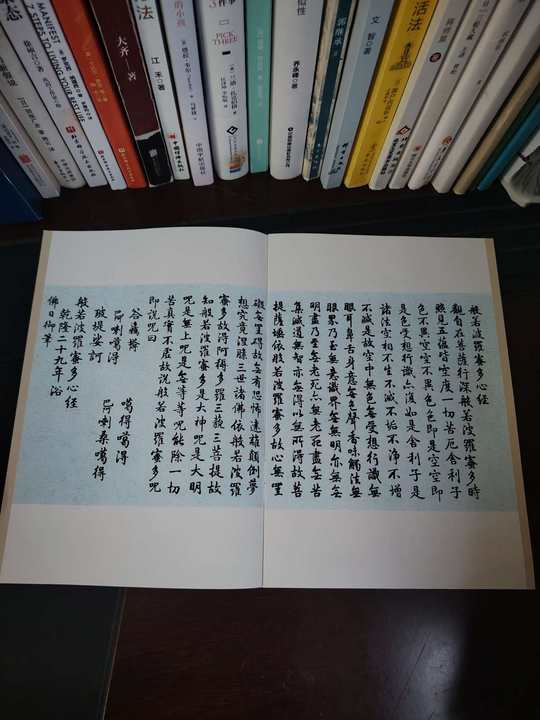 态
MANIFEST
大齐 著
江禾 著
活法
的小孩
件事
PICK THREE
似性
文智 著
活法
般若波羅蜜多心經
觀自在菩薩行深般若波羅蜜多時
照見五蘊皆空度一切苦厄舍利子
色不異空空不異色色即是空空即
是色受想行識亦復如是舍利子是
諸法空相不生不滅不垢不淨不增
不減是故空中無色無受想行識無
眼耳鼻舌身意無色聲香味觸法無
眼界乃至無意識界無無明亦無無
明盡乃至無老死亦無老死盡無苦
集滅道無智亦無得以無所得故菩
提薩埵依般若波羅蜜多故心無罣
礙無罣碍故無有恐怖遠離顛倒夢
想究竟涅槃三世諸佛依般若波羅
蜜多故得阿耨多羅三藐三菩提故
知般若波羅蜜多是大神呪是大明
呪是無上呪是無等等呪能除一切
苦真實不虛故說般若波羅蜜多呪
即說呪曰
噶得噶得
阿喇噶得
阿喇桑噶得
玻提娑訶
般若波羅蜜多心經
乾隆二十九年浴
佛日御筆